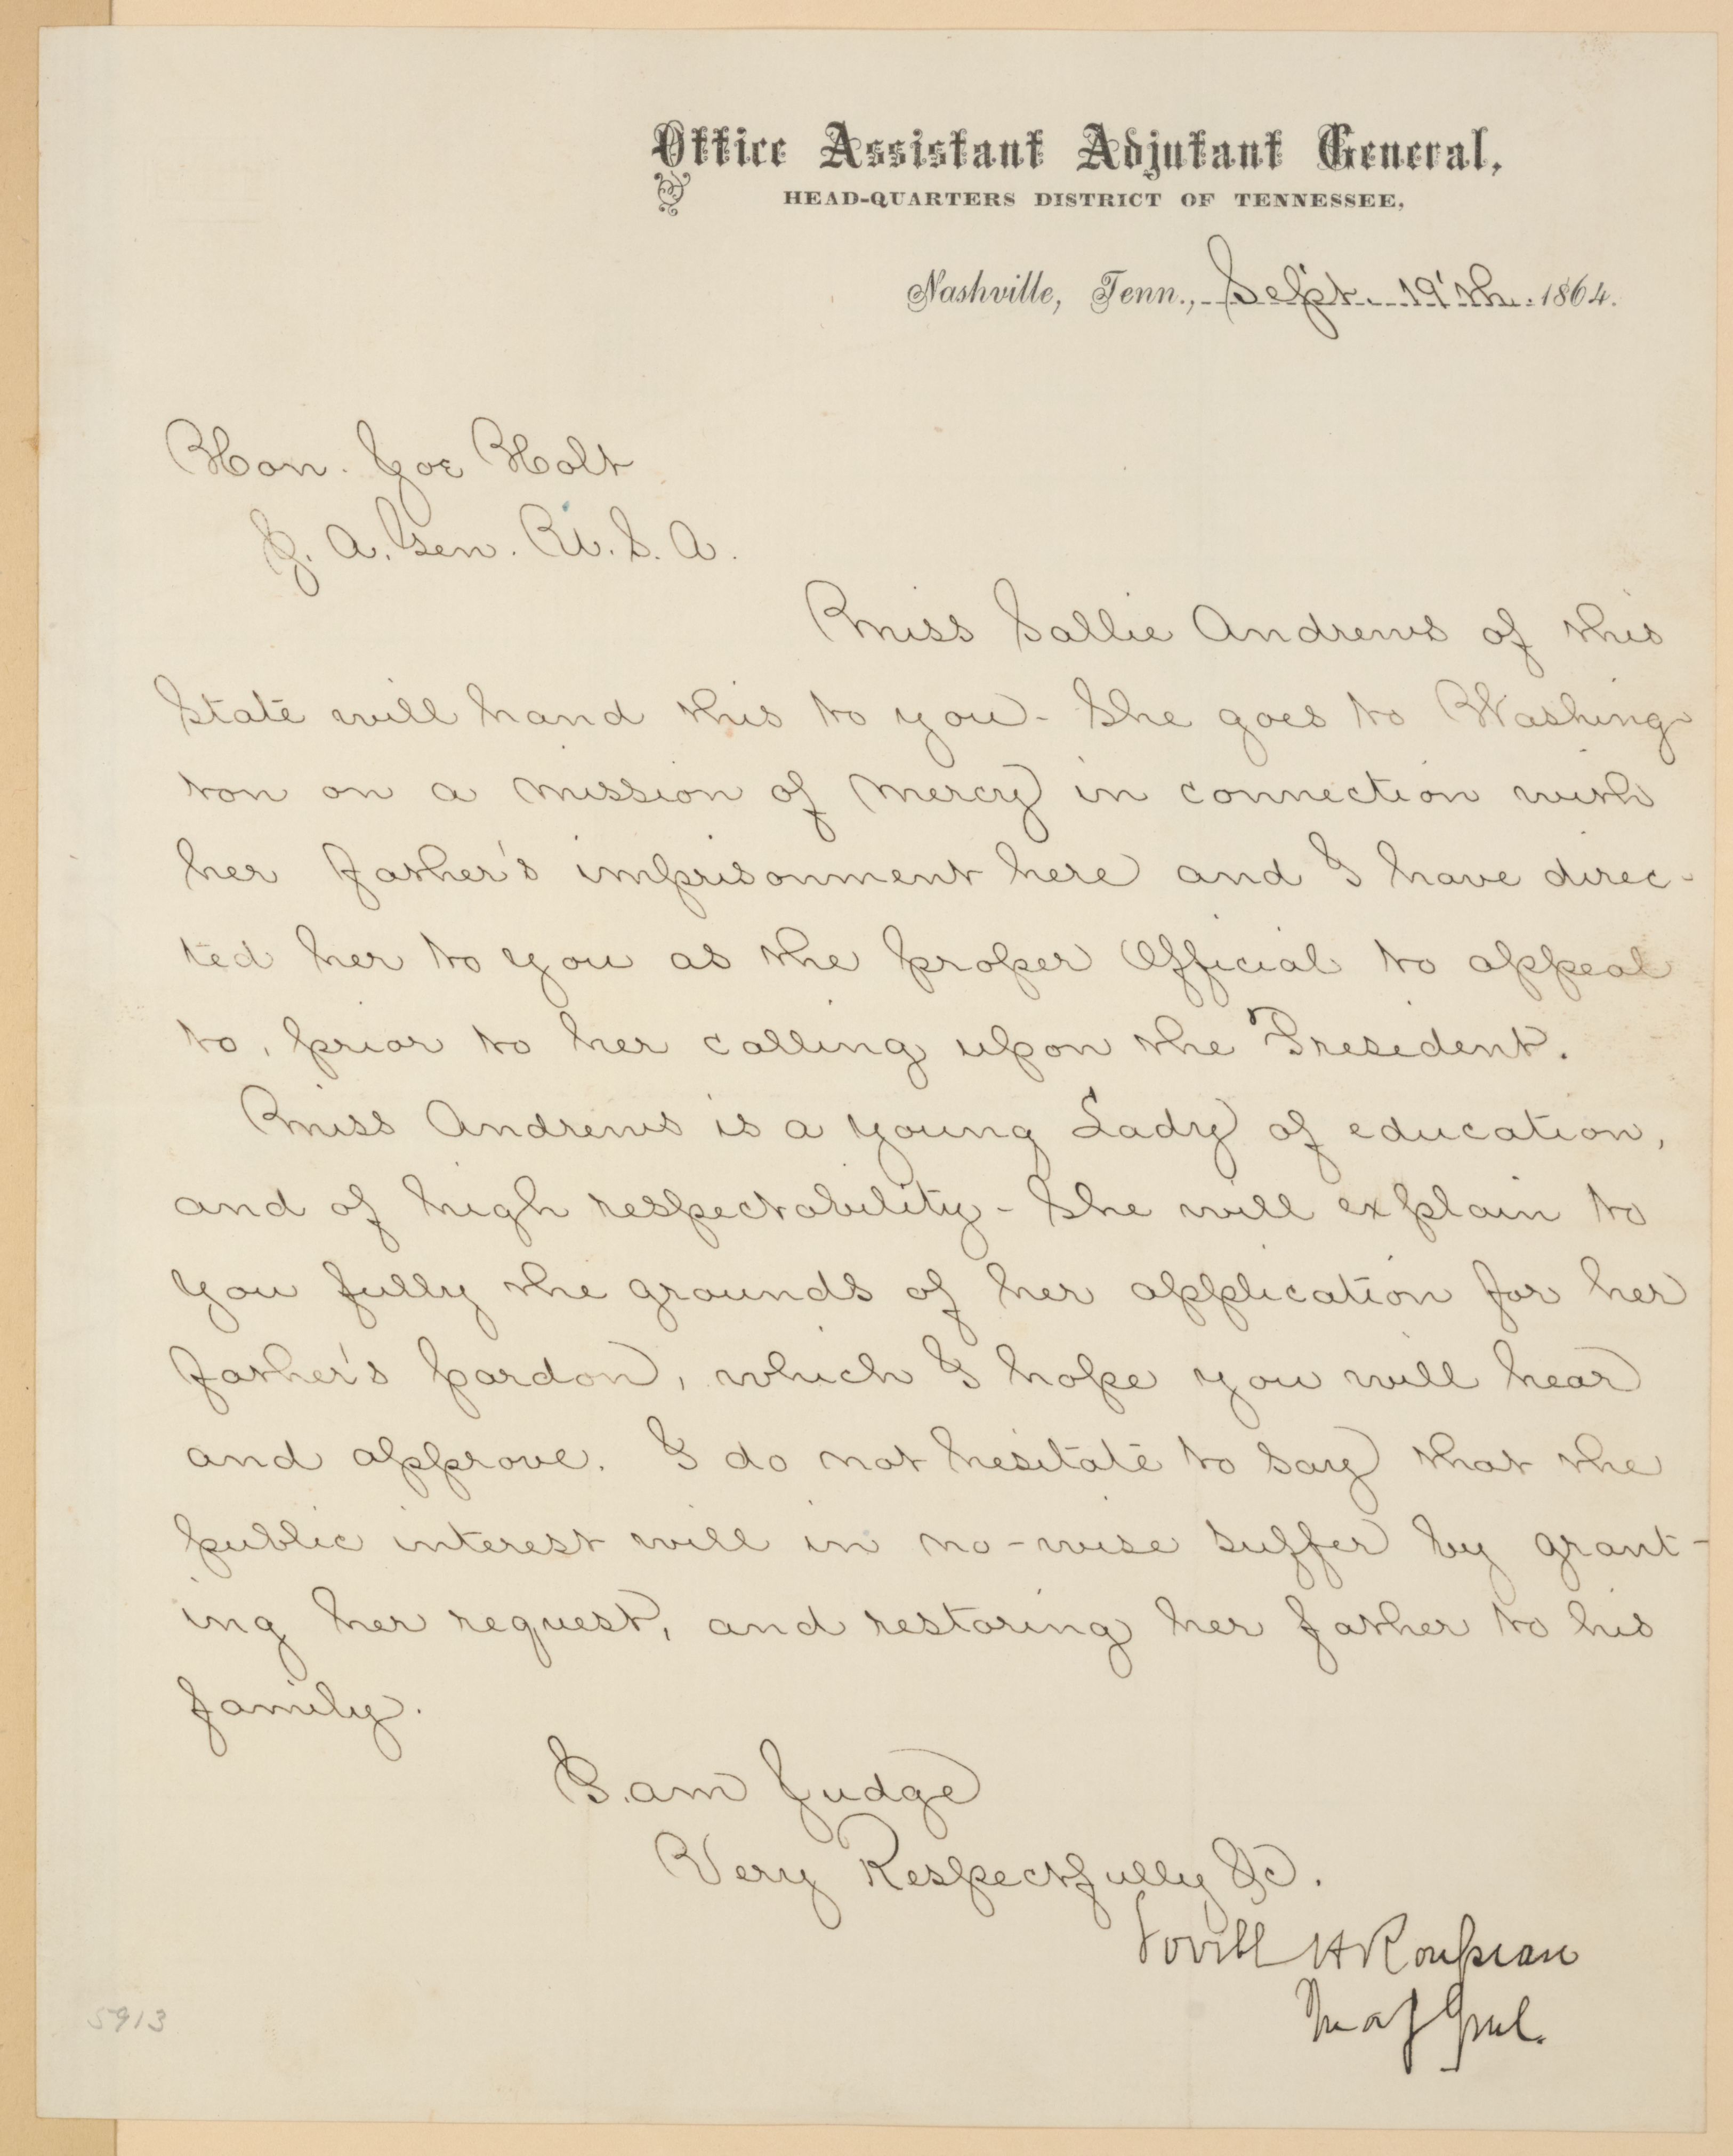 Office Assistant Adjutant General,
HEAD-QUARTERS DISTRICT OF TENNESSEE,
Nashville, Tenn., Sept. 19th. 1864.
Hon. Joe Holt
J. A. Gen. U. S. A.
Miss Sallie Andrews of this
State will hand this to you - She goes to Washing
ton on a mission of mercy in connection with
her father's imprisonment here and I have direc-
ted her to you as the proper Official to appeal
to, prior to her calling upon the President.
Miss Andrews is a young Lady of education,
and of high respectability - She will explain to
you fully the grounds of her application for her
father's pardon, which I hope you will hear
and approve. I do not hesitate to say that the
public interest will in no-wise suffer by grant-
ing her request, and restoring her father to his
family.
I am Judge
Very Respectfully &c.
Lovell H Rousseau
Maj Genl.
5913